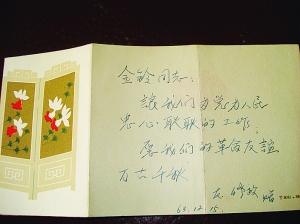 金铃同志：
让我们为党为人民
忠心耿耿的工作，
愿我们的革命友谊
万古千秋
友 修政 赠
63.12.15.